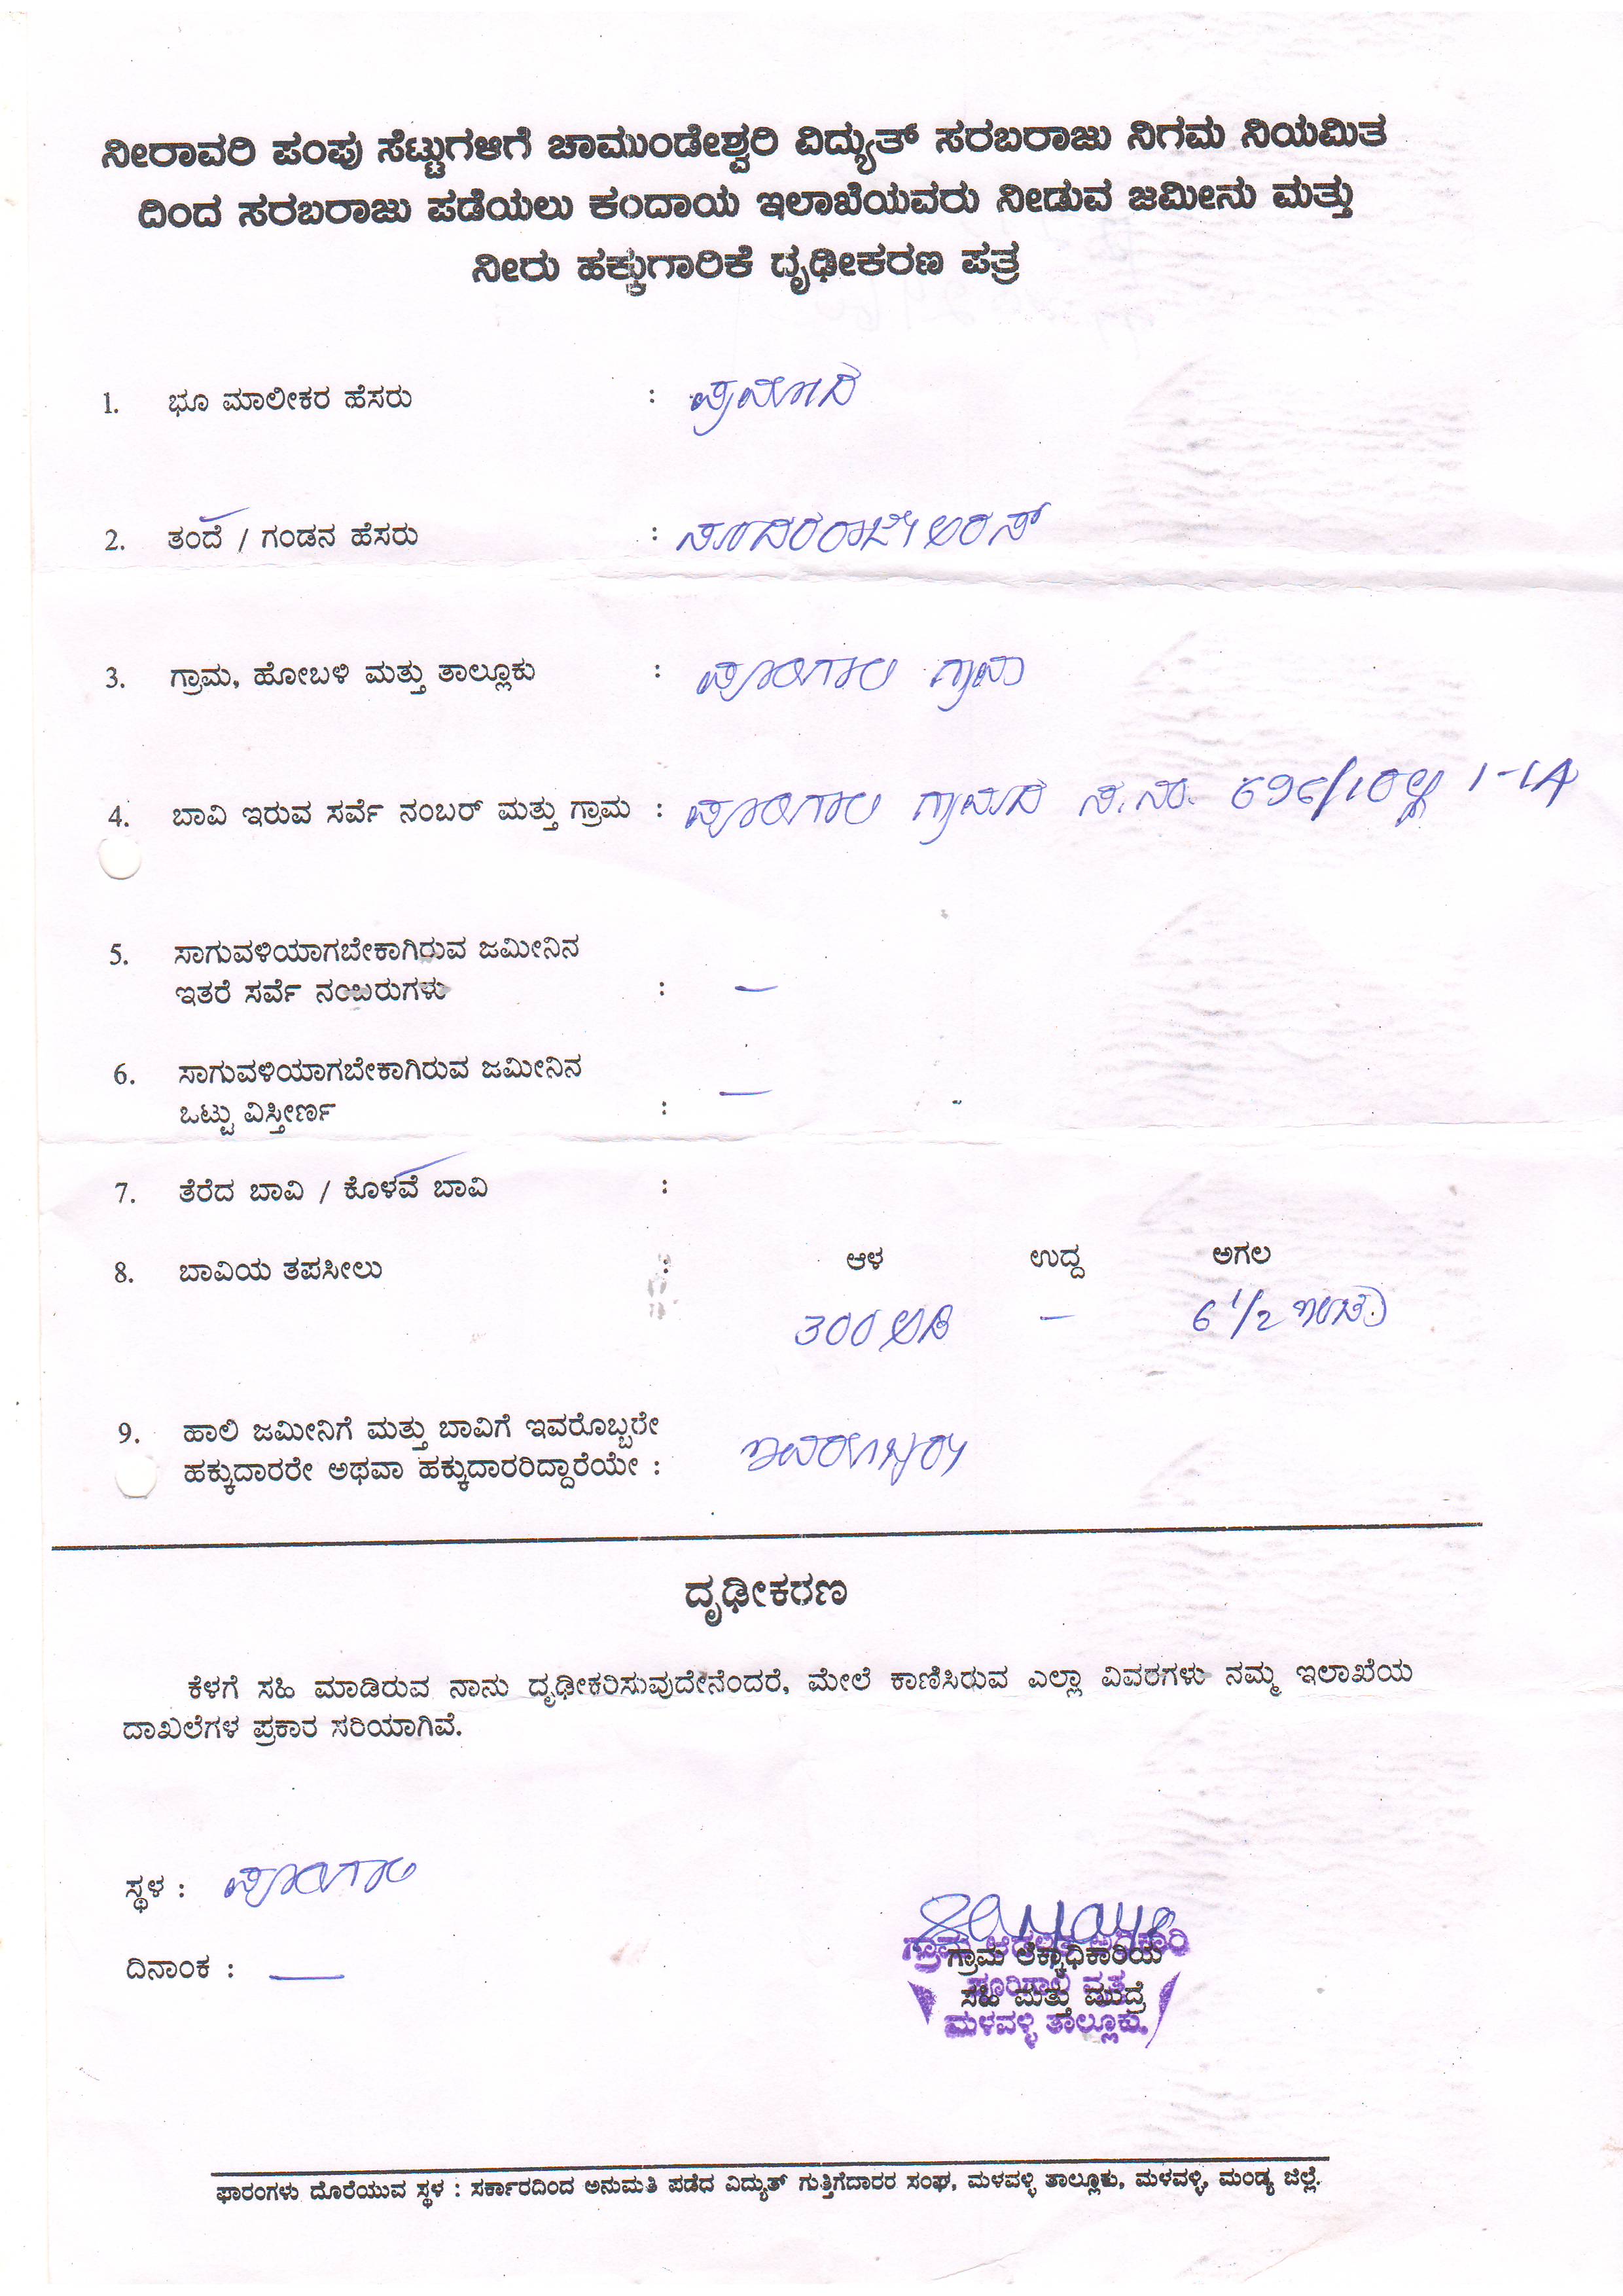 ನೀರಾವರಿ ಪಂಪು ಸೆಟ್ಟುಗಳಿಗೆ ಚಾಮುಂಡೇಶ್ವರಿ ವಿದ್ಯುತ್ ಸರಬರಾಜು ನಿಗಮ ನಿಯಮಿತ
ದಿಂದ ಸರಬರಾಜು ಪಡೆಯಲು ಕಂದಾಯ ಇಲಾಖೆಯವರು ನೀಡುವ ಜಮೀನು ಮತ್ತು
ನೀರು ಹಕ್ಕುಗಾರಿಕೆ ದೃಢೀಕರಣ ಪತ್ರ
1. ಭೂ ಮಾಲೀಕರ ಹೆಸರು : ಪ್ರಮೋದ
2. ತಂದೆ / ಗಂಡನ ಹೆಸರು : ಸೂದರರಾಜೇ ಅರಸ್
3. ಗ್ರಾಮ, ಹೋಬಳಿ ಮತ್ತು ತಾಲ್ಲೂಕು : ಪೂರಿಗಾಲಿ ಗ್ರಾಮ
4. ಬಾವಿ ಇರುವ ಸರ್ವೆ ನಂಬರ್ ಮತ್ತು ಗ್ರಾಮ : ಪೂರಿಗಾಲಿ ಗ್ರಾಮದ ಸ.ನಂ. 696/1ರಲ್ಲಿ 1-1A
5. ಸಾಗುವಳಿಯಾಗಬೇಕಾಗಿರುವ ಜಮೀನಿನ
ಇತರೆ ಸರ್ವೆ ನಂಬರುಗಳು : —
6. ಸಾಗುವಳಿಯಾಗಬೇಕಾಗಿರುವ ಜಮೀನಿನ
ಒಟ್ಟು ವಿಸ್ತೀರ್ಣ : —
7. ತೆರೆದ ಬಾವಿ / ಕೊಳವೆ ಬಾವಿ :
8. ಬಾವಿಯ ತಪಸೀಲು : ಆಳ ಉದ್ದ ಅಗಲ
300 ಅಡಿ — 6 1/2 ಇಂಚು
9. ಹಾಲಿ ಜಮೀನಿಗೆ ಮತ್ತು ಬಾವಿಗೆ ಇವರೊಬ್ಬರೇ
ಹಕ್ಕುದಾರರೇ ಅಥವಾ ಹಕ್ಕುದಾರರಿದ್ದಾರೆಯೇ : ಇವರೊಬ್ಬರೇ
ದೃಢೀಕರಣ
ಕೆಳಗೆ ಸಹಿ ಮಾಡಿರುವ ನಾನು ದೃಢೀಕರಿಸುವುದೇನೆಂದರೆ, ಮೇಲೆ ಕಾಣಿಸಿರುವ ಎಲ್ಲಾ ವಿವರಗಳು ನಮ್ಮ ಇಲಾಖೆಯ
ದಾಖಲೆಗಳ ಪ್ರಕಾರ ಸರಿಯಾಗಿವೆ.
ಸ್ಥಳ : ಪೂರಿಗಾಲಿ
ದಿನಾಂಕ : —
ಗ್ರಾಮ ಆಡಳಿತ ಅಧಿಕಾರಿ
ಗ್ರಾಮ ಲೆಕ್ಕಾಧಿಕಾರಿಯ
ಪೂರಿಗಾಲಿ ವೃತ್ತ
ಸಹಿ ಮತ್ತು ಮುದ್ರೆ
ಮಳವಳ್ಳಿ ತಾಲ್ಲೂಕು.
ಫಾರಂಗಳು ದೊರೆಯುವ ಸ್ಥಳ : ಸರ್ಕಾರದಿಂದ ಅನುಮತಿ ಪಡೆದ ವಿದ್ಯುತ್ ಗುತ್ತಿಗೆದಾರರ ಸಂಘ, ಮಳವಳ್ಳಿ ತಾಲ್ಲೂಕು, ಮಳವಳ್ಳಿ, ಮಂಡ್ಯ ಜಿಲ್ಲೆ.